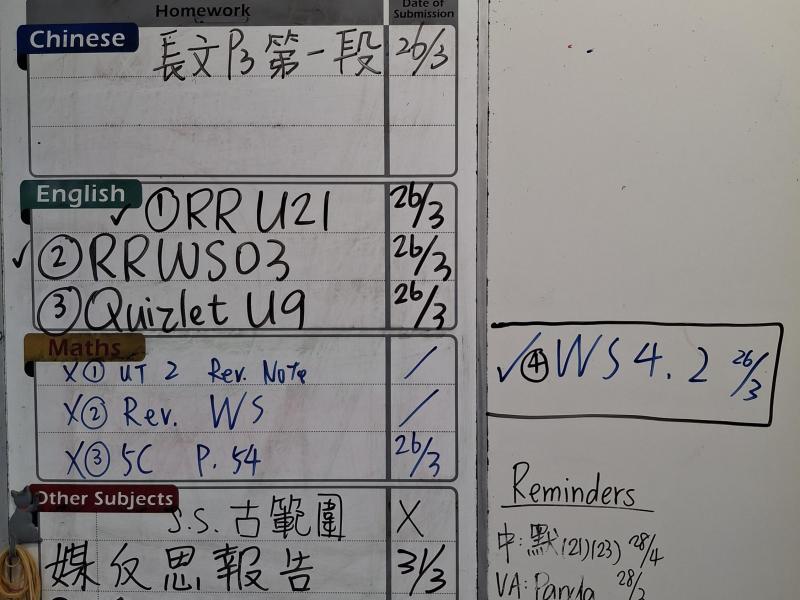 Homework Date of Submission
Chinese
長文P3第一段 26/3
English
✓ ①RR U21 26/3
✓ ②RRWS03 26/3
③Quizlet U9 26/3
Maths
X① UT 2 Rev. Note /
X② Rev. WS /
X③ 5C P. 54 26/3
✓④WS 4.2 26/3
Other Subjects
J.S. 古範圍 X
媒反思報告 31/3
Reminders
中:默(21)(23) 28/4
VA: Panda 28/3